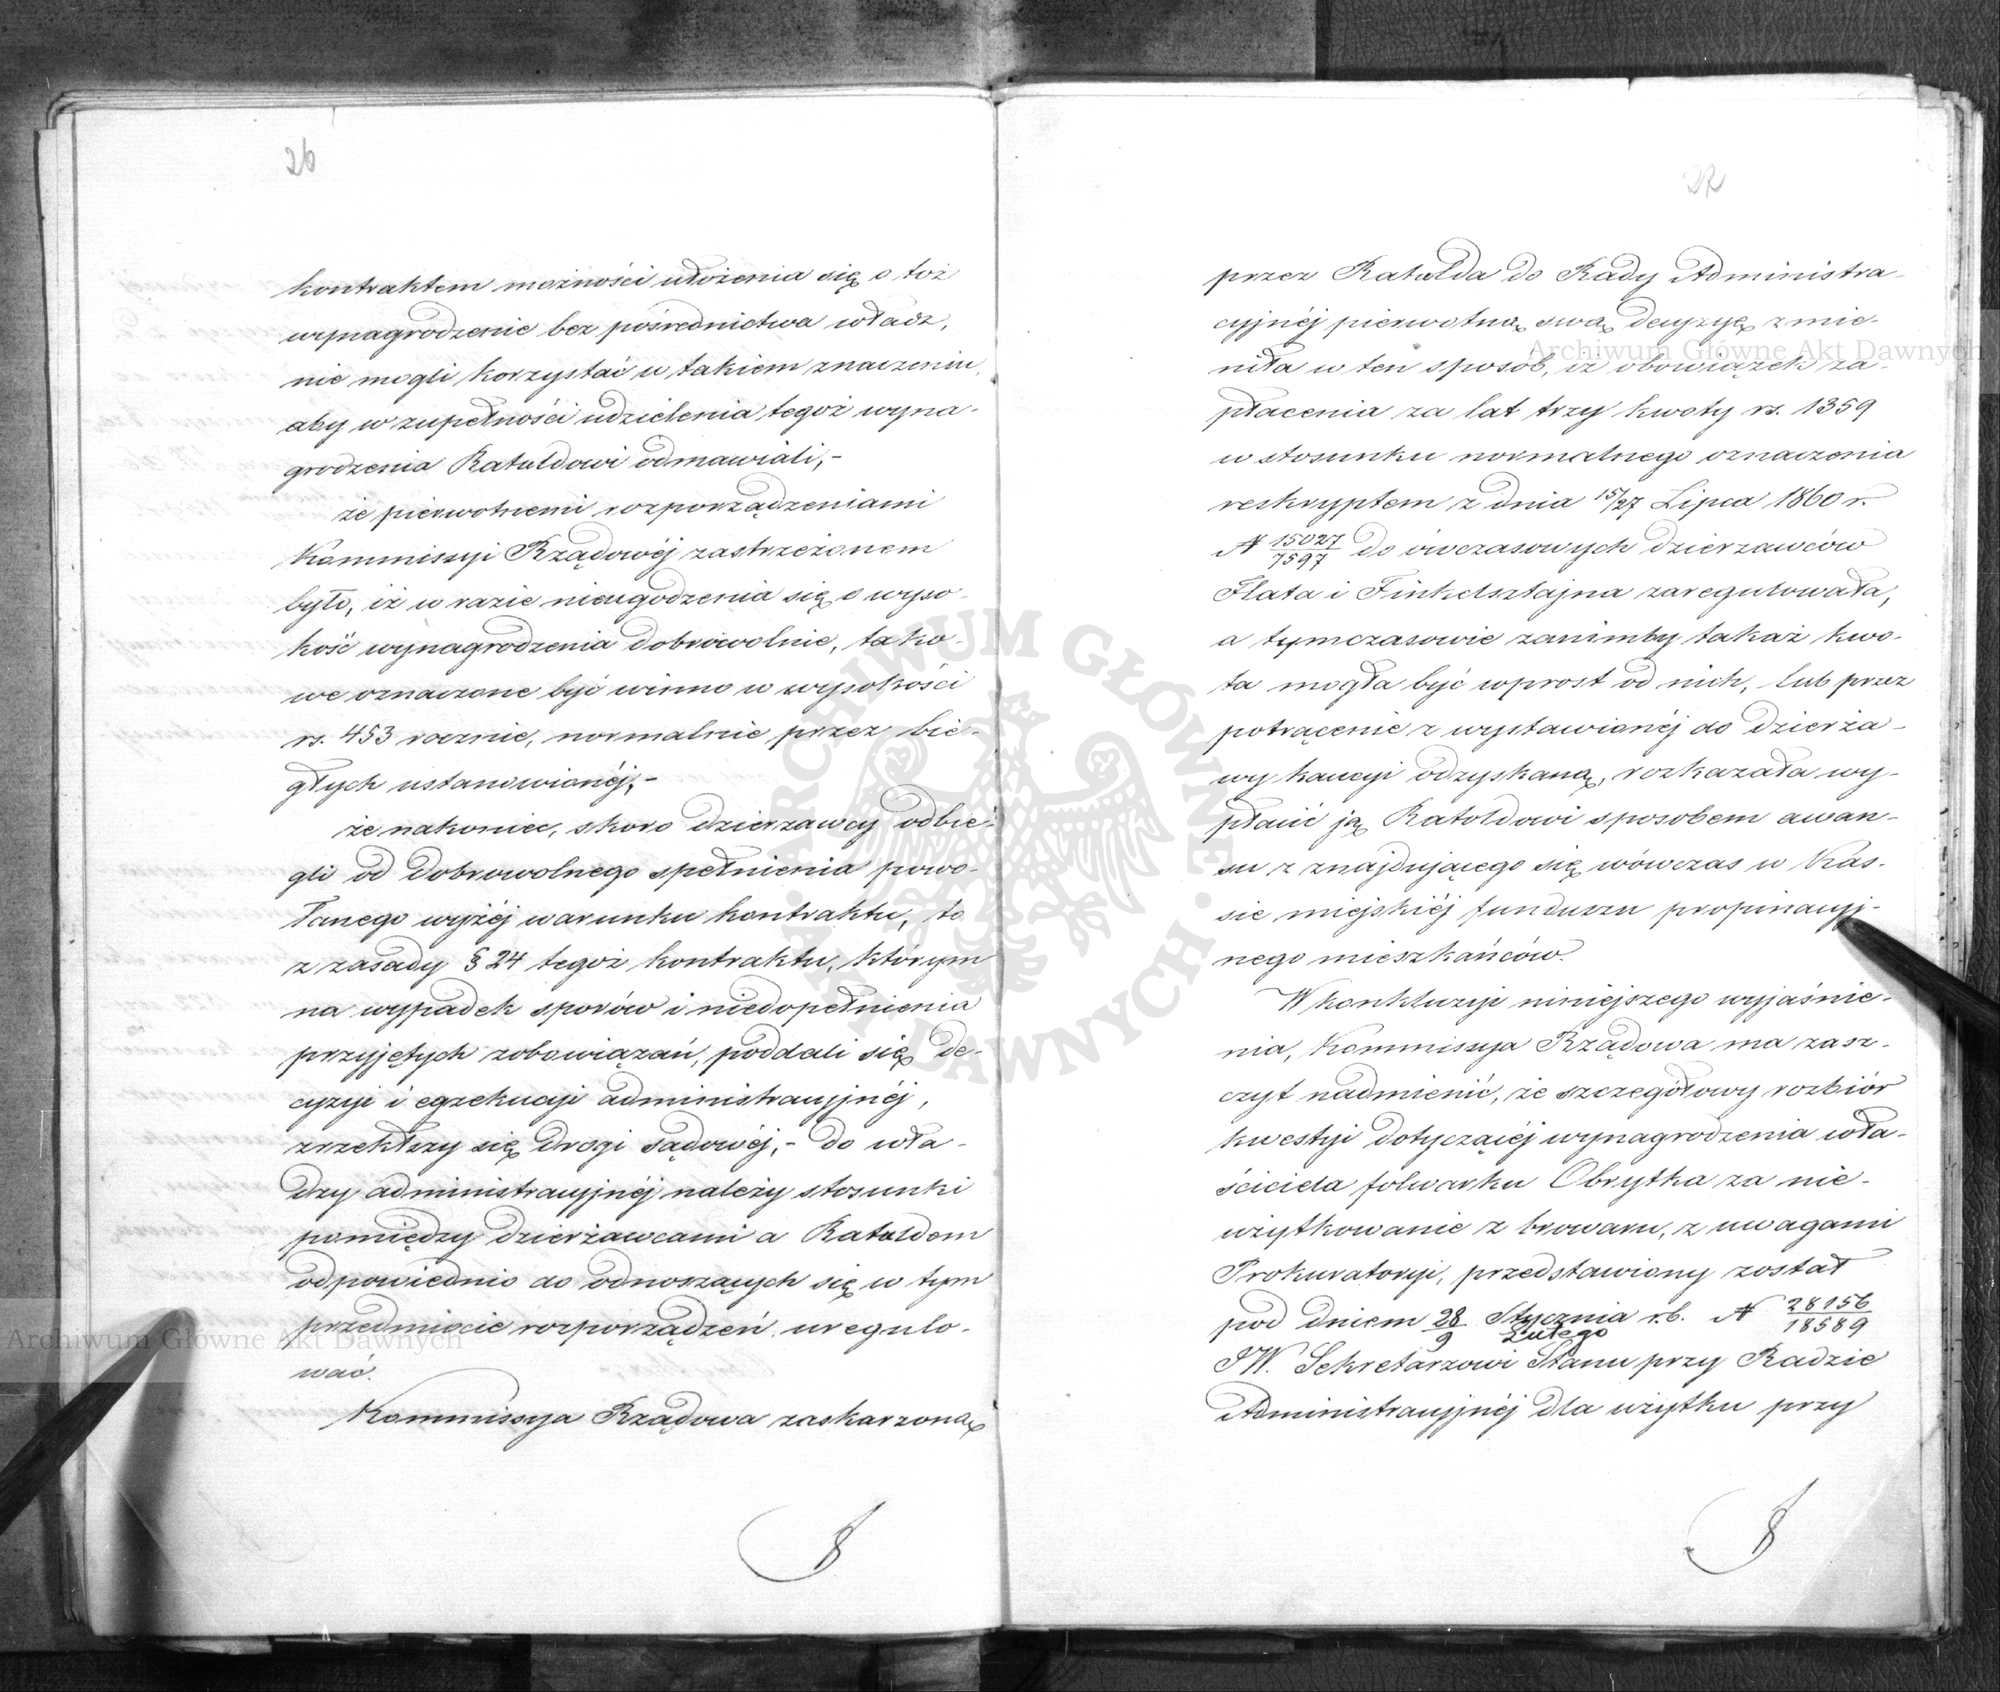 26
kontraktem możności ułożenia się o toż
wynagrodzenie bez pośrednictwa władz,
nie mogli korzystać w takiem znaczeniu,
aby w zupełności udzielenia tegoż wyna-
grodzenia Ratuldowi odmawiali,-
że pierwotnemi rozporządzeniami
Kommissyi Rządowéj zastrzeżonem
było, iż w razie nieugodzenia się o wyso-
kość wynagrodzenia dobrowolnie, tako-
we oznaczone być winno w wysokości
rs. 453 rocznie, normalnie przez bie-
głych ustanowionéj,-
że nakoniec, skoro dzierzawcy odbie-
gli od dobrowolnego spełnienia powo-
łanego wyżéj warunku kontraktu, to
z zasady § 24 tegoż kontraktu, którym
na wypadek sporów i niedopełnienia
przyjętych zobowiązań, poddali się de-
cyzyi i egzekucyi administracyjnéj,
zrzekłszy się drogi sądowéj,- do wła-
dzy administracyjnéj należy stosunki
pomiędzy dzierżawcami a Ratuldem
odpowiednio do odnoszących się w tym
przedmiocie rozporządzeń uregulo-
wać.
Kommissya Rządowa zaskarzoną
27
przez Ratulda do Rady Administra-
cyjnéj pierwotną swą decyzyę zmie-
niła w ten sposób, iż obowiązek za-
płacenia za lat trzy kwoty rs. 1359
w stosunku normalnego oznaczenia
reskryptem z dnia 15/27 Lipca 1860 r.
N 15027/7597 do ówczasowych dzierzawców
Flata i Finkelsztajna zaregulowała,
a tymczasowie zanimby takaż kwo-
ta mogła być wprost od nich, lub przez
potrącenie z wystawionéj do dzierża-
wy kaucyi odzyskaną, rozkazała wy-
płacić ją Ratoldowi sposobem awan-
su z znajdującego się wówczas w Kas-
sie miejskiéj funduszu propinacyj-
nego mieszkańców.
W konkluzyi niniejszego wyjaśnie-
nia, Kommissya Rządowa ma zasz-
czyt nadmienić, że szczegółowy rozbiór
kwestyi dotyczącéj wynagrodzenia wła-
ściciela folwarku Obrytka za nie-
użytkowanie z browaru, z uwagami
Prokuratoryi, przedstawiony został
pod dniem 28/9 Stycznia/Lutego r.b. N 28156/18589
JW. Sekretarzowi Stanu przy Radzie
Administracyjnéj dla użytku przy
Archiwum Główne Akt Dawnych
Archiwum Główne Akt Dawnych
ARCHIWUM GŁÓWNE AKT DAWNYCH